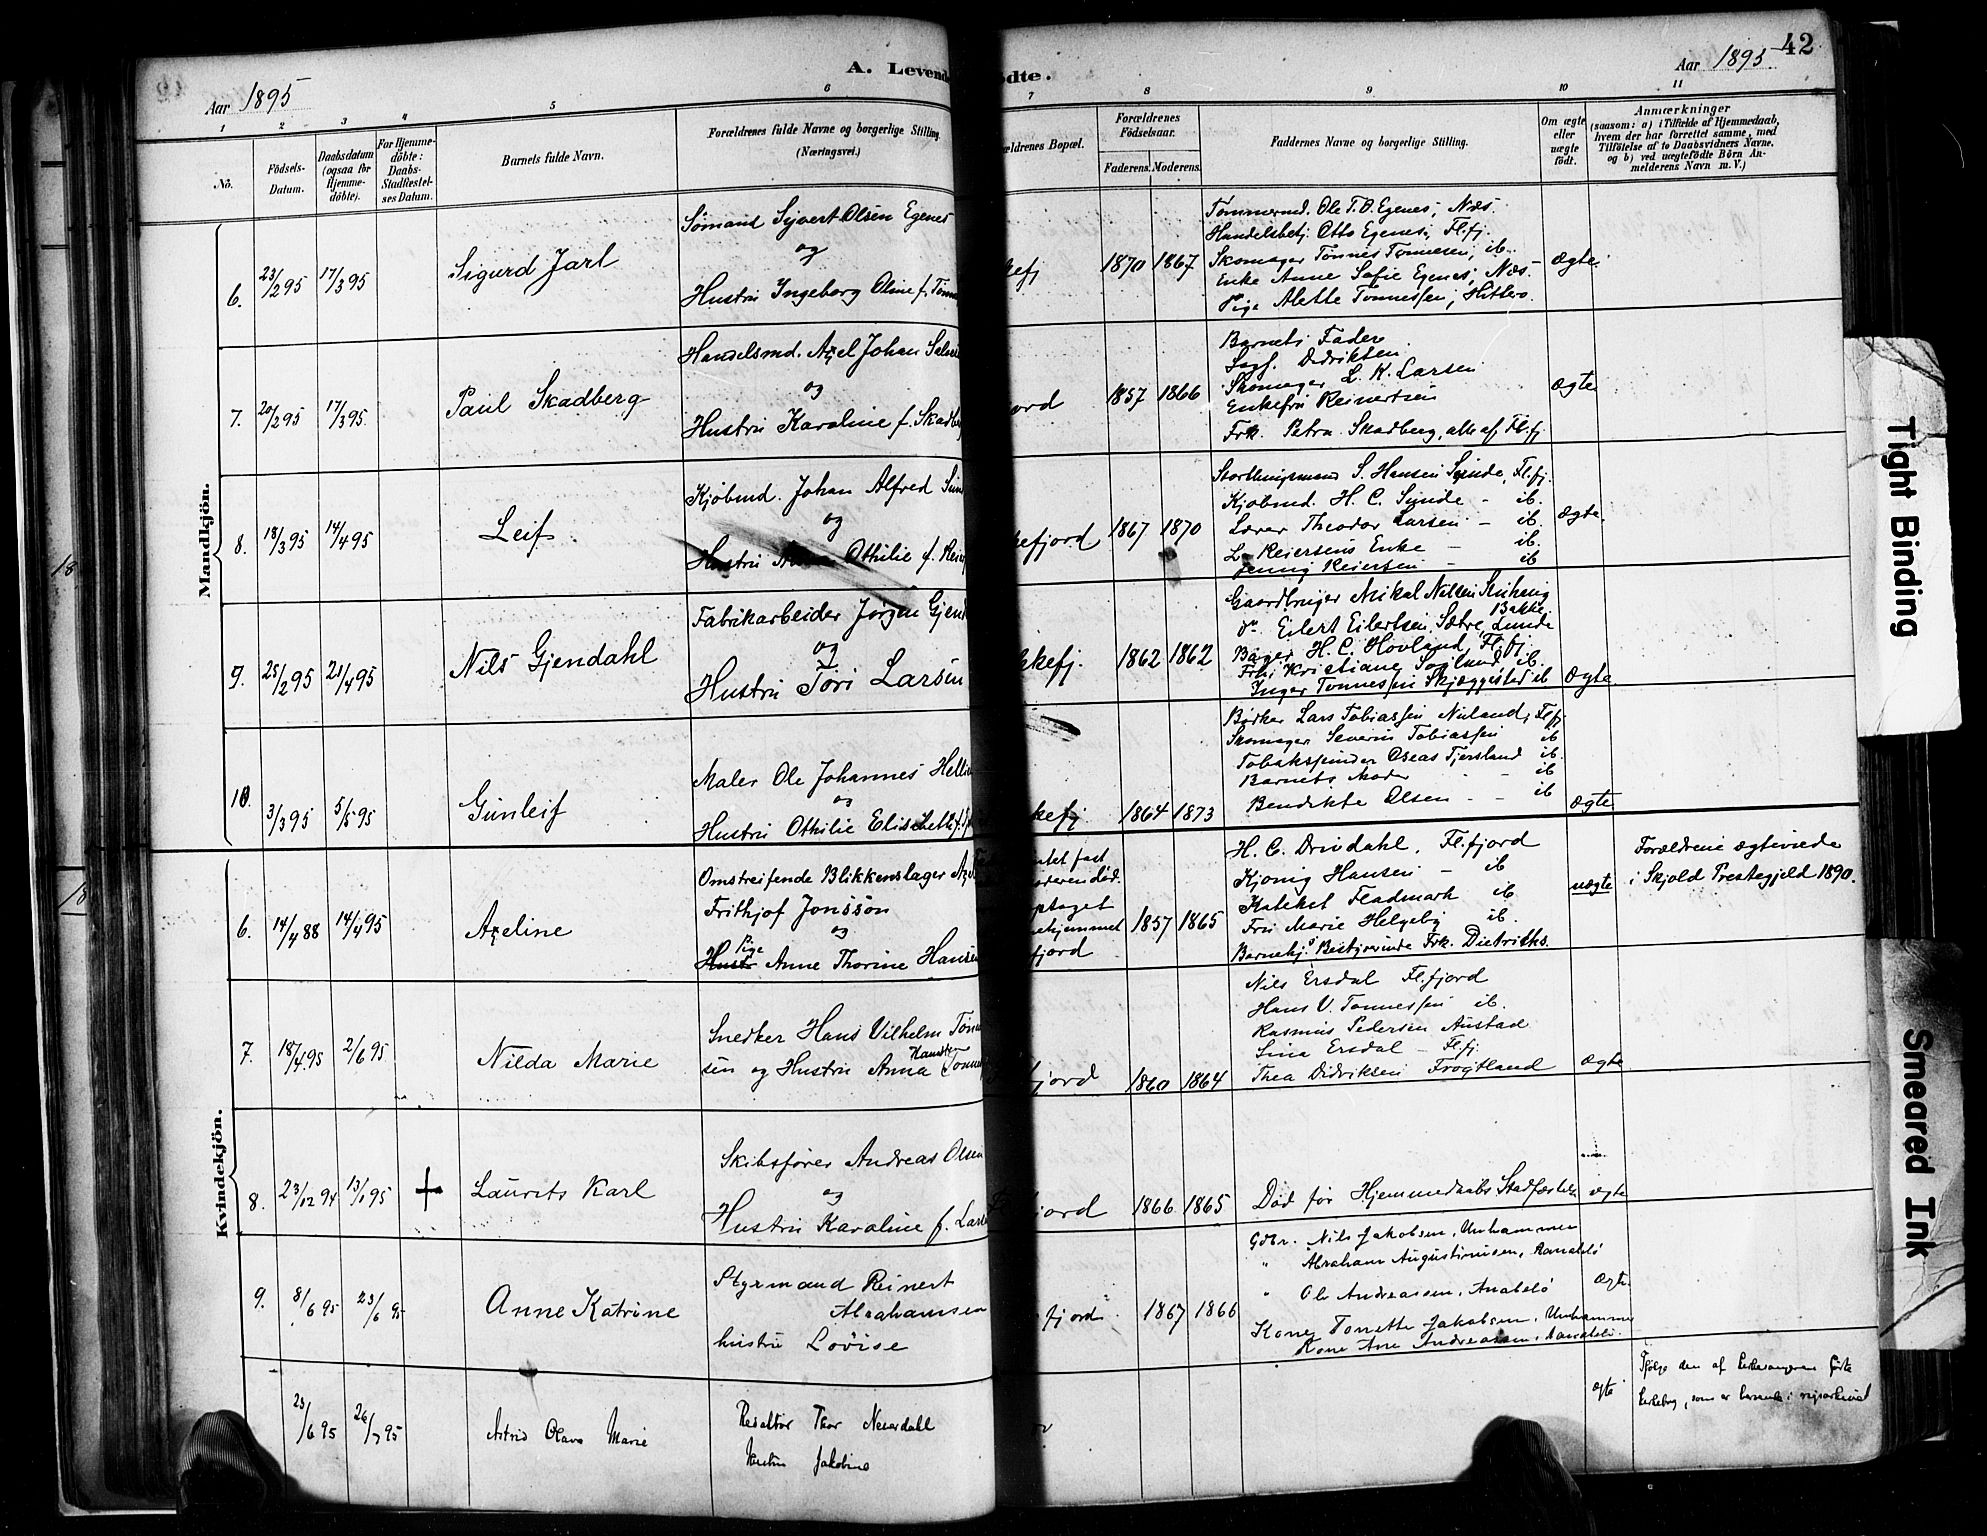 42
A. Levende
ödte.
Aar 1895
Aar 1895
1 2 3 4 5 6 7 8 9 10 11
No.
Födsels-
Datum.
Daabsdatum
(ogsaa for
Hjemme-
döbte).
For Hjemme-
döbte:
Daabs-
Stadfæstel-
ses Datum.
Barnets fulde Navn.
Forældrenes fulde Navne og borgerlige Stilling.
(Næringsvei.)
ældrenes Bopæl.
Forældrenes
Födselsaar.
Faderens. Moderens.
Faddernes Navne og borgerlige Stilling.
Om ægte
eller
uægte
födt.
Anmærkninger
(saasom: a) i Tilfælde af Hjemmedaab,
hvem der har forrettet samme, med
Tilföielse af to Daabsvidners Navne,
og b) ved uægtefödte Börn An-
melderens Navn m. V.)
Mandkjön.
6. 23/2 95 17/3 95 Sigurd Jarl
Sømand Syvert Olsen Egenes
og
Hustru Ingeborg Oline f. Tønn
kefj 1870 1867
Tømmermd. Ole T. O. Egenes, Næs.
Handelsbetj. Otto Egenes, Fl.fj.
Skomager Tønnes Tønnesen, ib.
Enke Anne Sofie Egenes, Næs
Pige Alette Tønnessen, Hitterø.
ægte.
7. 20/2 95 17/3 95. Paul Skadberg
Handelsmd. Axel Johan Salves
og
Hustru Karoline f. Skadbe
ord 1857 1866
Barnets Fader.
Sagf. Didriksen
Skomager L. K. Larsen
Enkefru Reinertsen
Frk. Petra Skadberg, alle af Fl.fj.
ægte
8. 18/3 95 14/4 95 Leif
Kjøbmd. Johan Alfred Sun
og
Hustru Othilie f. Reier
kefjord 1867 1870
Storthingsmand S. Hansen Sunde, Fl.fj.
Kjøbmd. H. C. Sunde - ib.
Lærer Theodor Larsen - ib.
L. Reiersens Enke - ib.
Jenny Reiersen - ib
ægte.
9. 25/2 95 21/4 95 Nils Gjendahl
Fabrikarbeider Jørgen Gjend
og
Hustru Tori Larsen
kkefj. 1862 1862
Gaardbruger Mikal Nilsen
Bakke.
do. Eilert Eilertsen, Sætre, Lunde
Bager H. C. Hovland, Fl.fj.
Fru Kristiane ib.
Inger Tønnessen Skjæggestad ib
Ægte.
10. 3/3 95 5/5 95 Gunleif
Maler Ole Johannes Helli
og
Hustru Othilie Elisabeth f.
kefj 1864 1873
Bødker Lars Tobiassen Nuland, Fl.fj.
Skomager Severin Tobiassen ib
Tobakspinder Oseas Tjersland ib
Barnets Moder - - ib
Bendikte Olsen - - ib
ægte
Kvindekjön.
6. 14/4 88 14/4 95 Axeline
Omstreifende Blikkenslager Axel
Frithjof Jonsson
og
Pige
Hustr Anne Thorine Hansen
ntet fast
oderen død.
ptaget
ehjemmet
fjord
1857 1865
H. C. Drivdahl, Fl.fjord
Kjønig Hansen - ib
Kateket Fladmark ib
Fru Marie Helgeby ib.
Barnehj.s Bestyrerinde Frk. Dietrichs.
uægte
Forældrene ægteviede
i Skjold Prestegjeld 1890.
7. 18/4 95 2/6 95 Nilda Marie
Snedker Hans Vilhelm Tønn
sen og Hustru Anna Tønne
jord 1860 1864
Nils Ersdal Fl.fjord
Hans V. Tønnessen ib.
Rasmus Pedersen Austad
Sina Ersdal - Fl.fj.
Thea Didriksen Frøytland
ægte
8. 23/12 94 13/1 95 + Laurits Karl
Skibsfører Andreas Olsen
og
Hustru Karoline f. Larse
jord 1866 1865
Død før Hjemmedaabs Stadfæstelse
ægte
9. 8/6 95 23/6 95 Anne Katrine
Styrmand Reinert
Abrahamsen
hustru Lovise
fjord. 1867 1866
Gdbr. Nils Jakobsen, Urehammer
" Abraham Augustinusen, Aanabelø
" Ole Andreassen, Anabelø
Kone Tonette Jakobsen, Urehammer
Kone Ane Andreassen, Aanabelø.
Ægte.
23/6 95 26/7 95 Astrid Olava Marie
Redaktør Thor Neverdahl
Hustru Jakobine
ægte
Ifølge den af kirkesangeren førte
kirkebog, som er bevaret i riksarkivet
18
18
Tight Binding
Smeared Ink